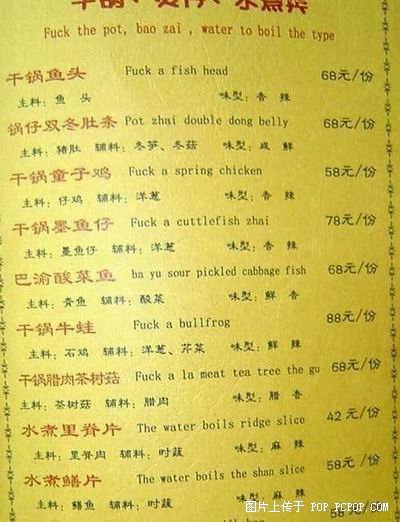 干锅、煲仔、水煮类
Fuck the pot, bao zai , water to boil the type
干锅鱼头 Fuck a fish head 68元/份
主料：鱼 头 味型：香 辣
锅仔双冬肚条 Pot zhai double dong belly 68元/份
主料：猪肚 辅料：冬笋、冬菇 味型：咸 鲜
干锅童子鸡 Fuck a spring chicken 58元/份
主料：仔鸡 辅料：洋葱 味型：香 辣
干锅墨鱼仔 Fuck a cuttlefish zhai 78元/份
主料：墨鱼仔 辅料：洋葱 味型：香 辣
巴渝酸菜鱼 ba yu sour pickled cabbage fish 68元/份
主料：青鱼 辅料：酸菜 味型：鲜 香
干锅牛蛙 Fuck a bullfrog 88元/份
主料：石鸡 辅料：洋葱、芹菜 味型：鲜 辣
干锅腊肉茶树菇 Fuck a la meat tea tree the gu 68元/份
主料：茶树菇 辅料：腊肉 味型：腊 香
水煮里脊片 The water boils ridge slice 42元/份
主料：里脊肉 辅料：时蔬 味型：麻 辣
水煮鳝片 The water boils the shan slice 58元/份
主料：鳝鱼 辅料：时蔬 味型：麻 辣
图片上传于 POP.PCPOP.COM